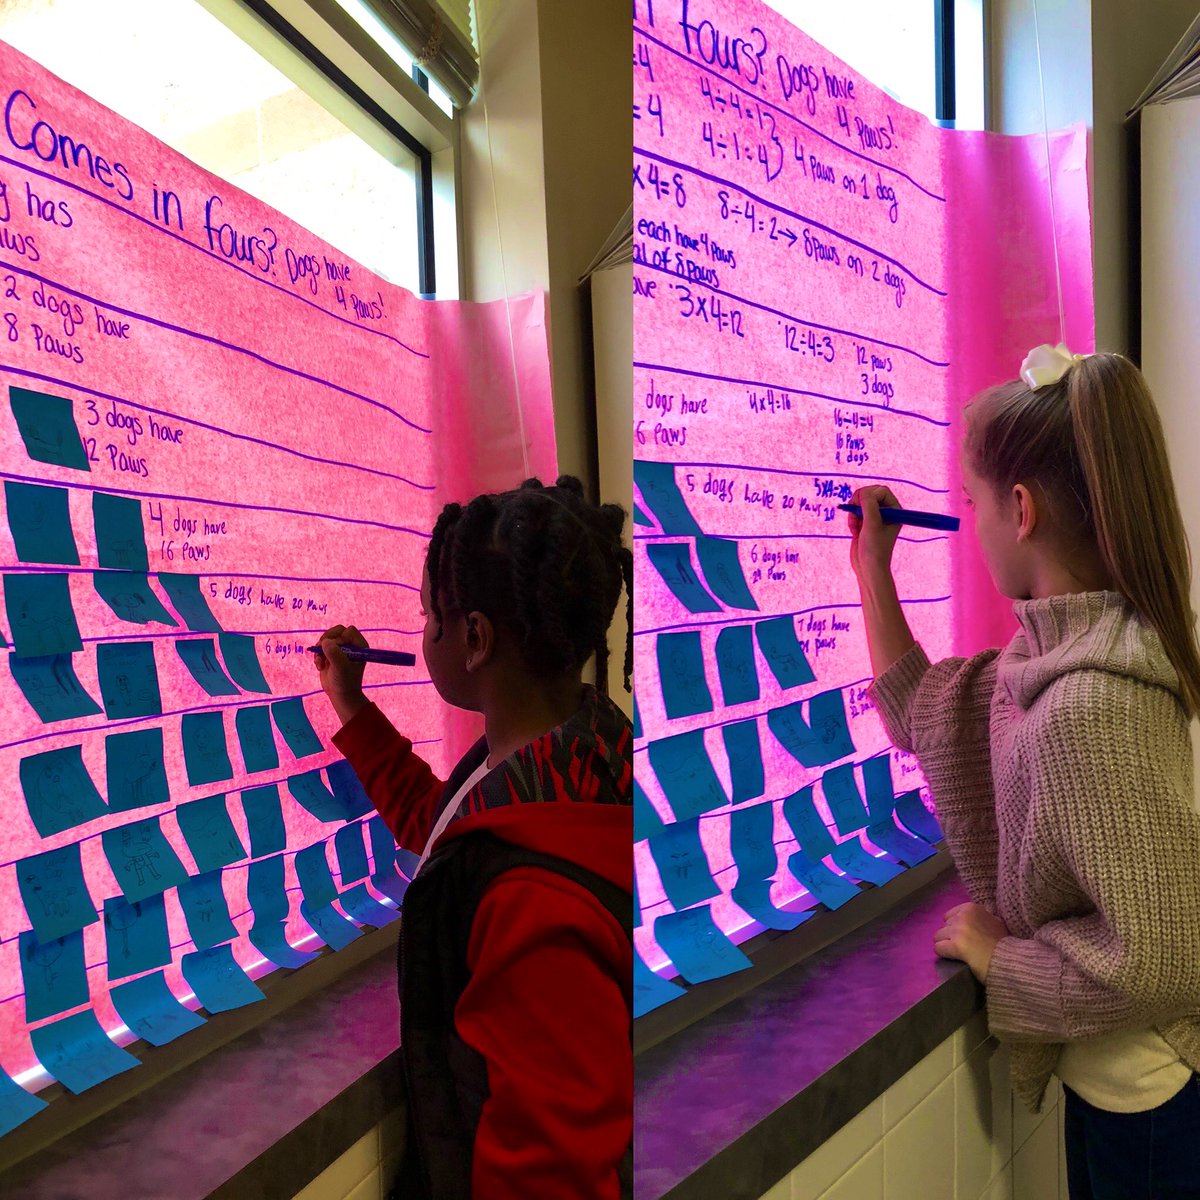 Comes in fours? Dogs have
4 Paws!
has
2 dogs have
8 Paws
3 dogs have
12 Paws
4 dogs have
16 Paws
5 dogs have 20 Paws
6 dogs hav
fours? Dogs have
4 Paws!
4÷4=1
4÷1=4
4 Paws on 1 dog
8÷4=2→ 8 Paws on 2 dogs
each have 4 Paws
of 8 Paws
3x4=12
12÷4=3
12 Paws
3 dogs
dogs have
Paws
4x4=16
16÷4=4
16 Paws
4 dogs
5 dogs have 20 Paws
5x4=
20
6 dogs have
24 Paws
7 dogs have
Paws